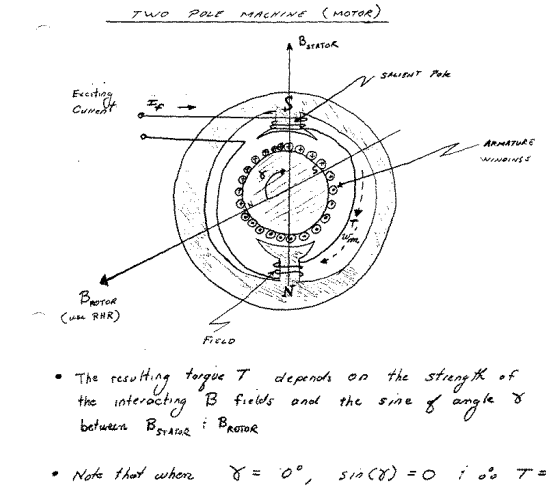 TWO POLE MACHINE (MOTOR)
B STATOR
SALIENT POLE
Exciting
Current
If
S
ARMATURE
WINDINGS
γ
S
N
T
Wm
B ROTOR
(use RHR)
N
FIELD
• The resulting torque T depends on the strength of
the interacting B fields and the sine of angle γ
between B STATOR & B ROTOR
• Note that when γ = 0°, sin(γ) = 0 & ∴ T =